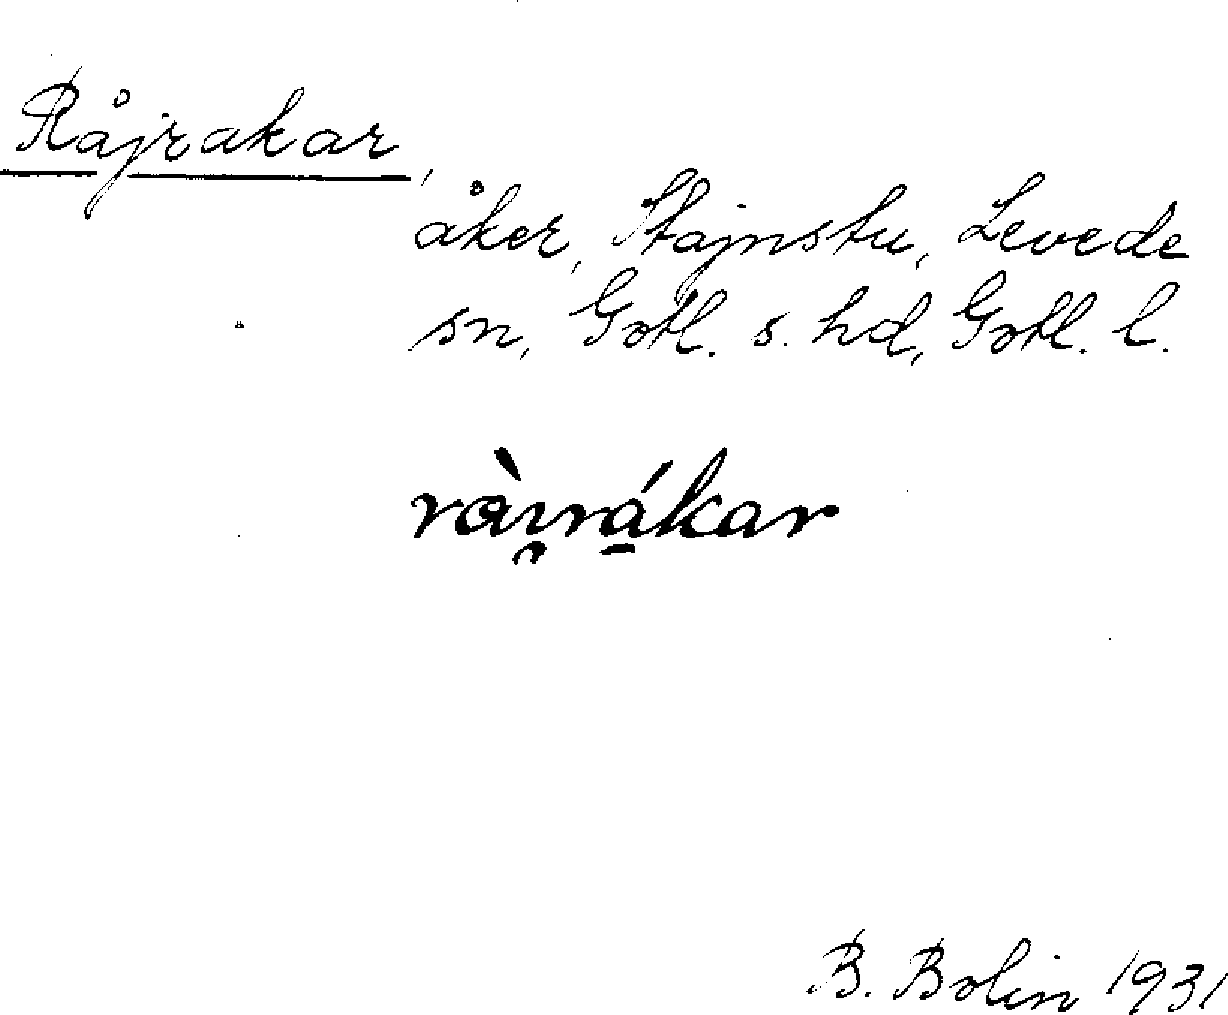 Råjrakar,
åker, Stajnstu, Levede
sn, Gotl. s. hd, Gotl. l.
ràı̯rákar
B. Bolin 1931